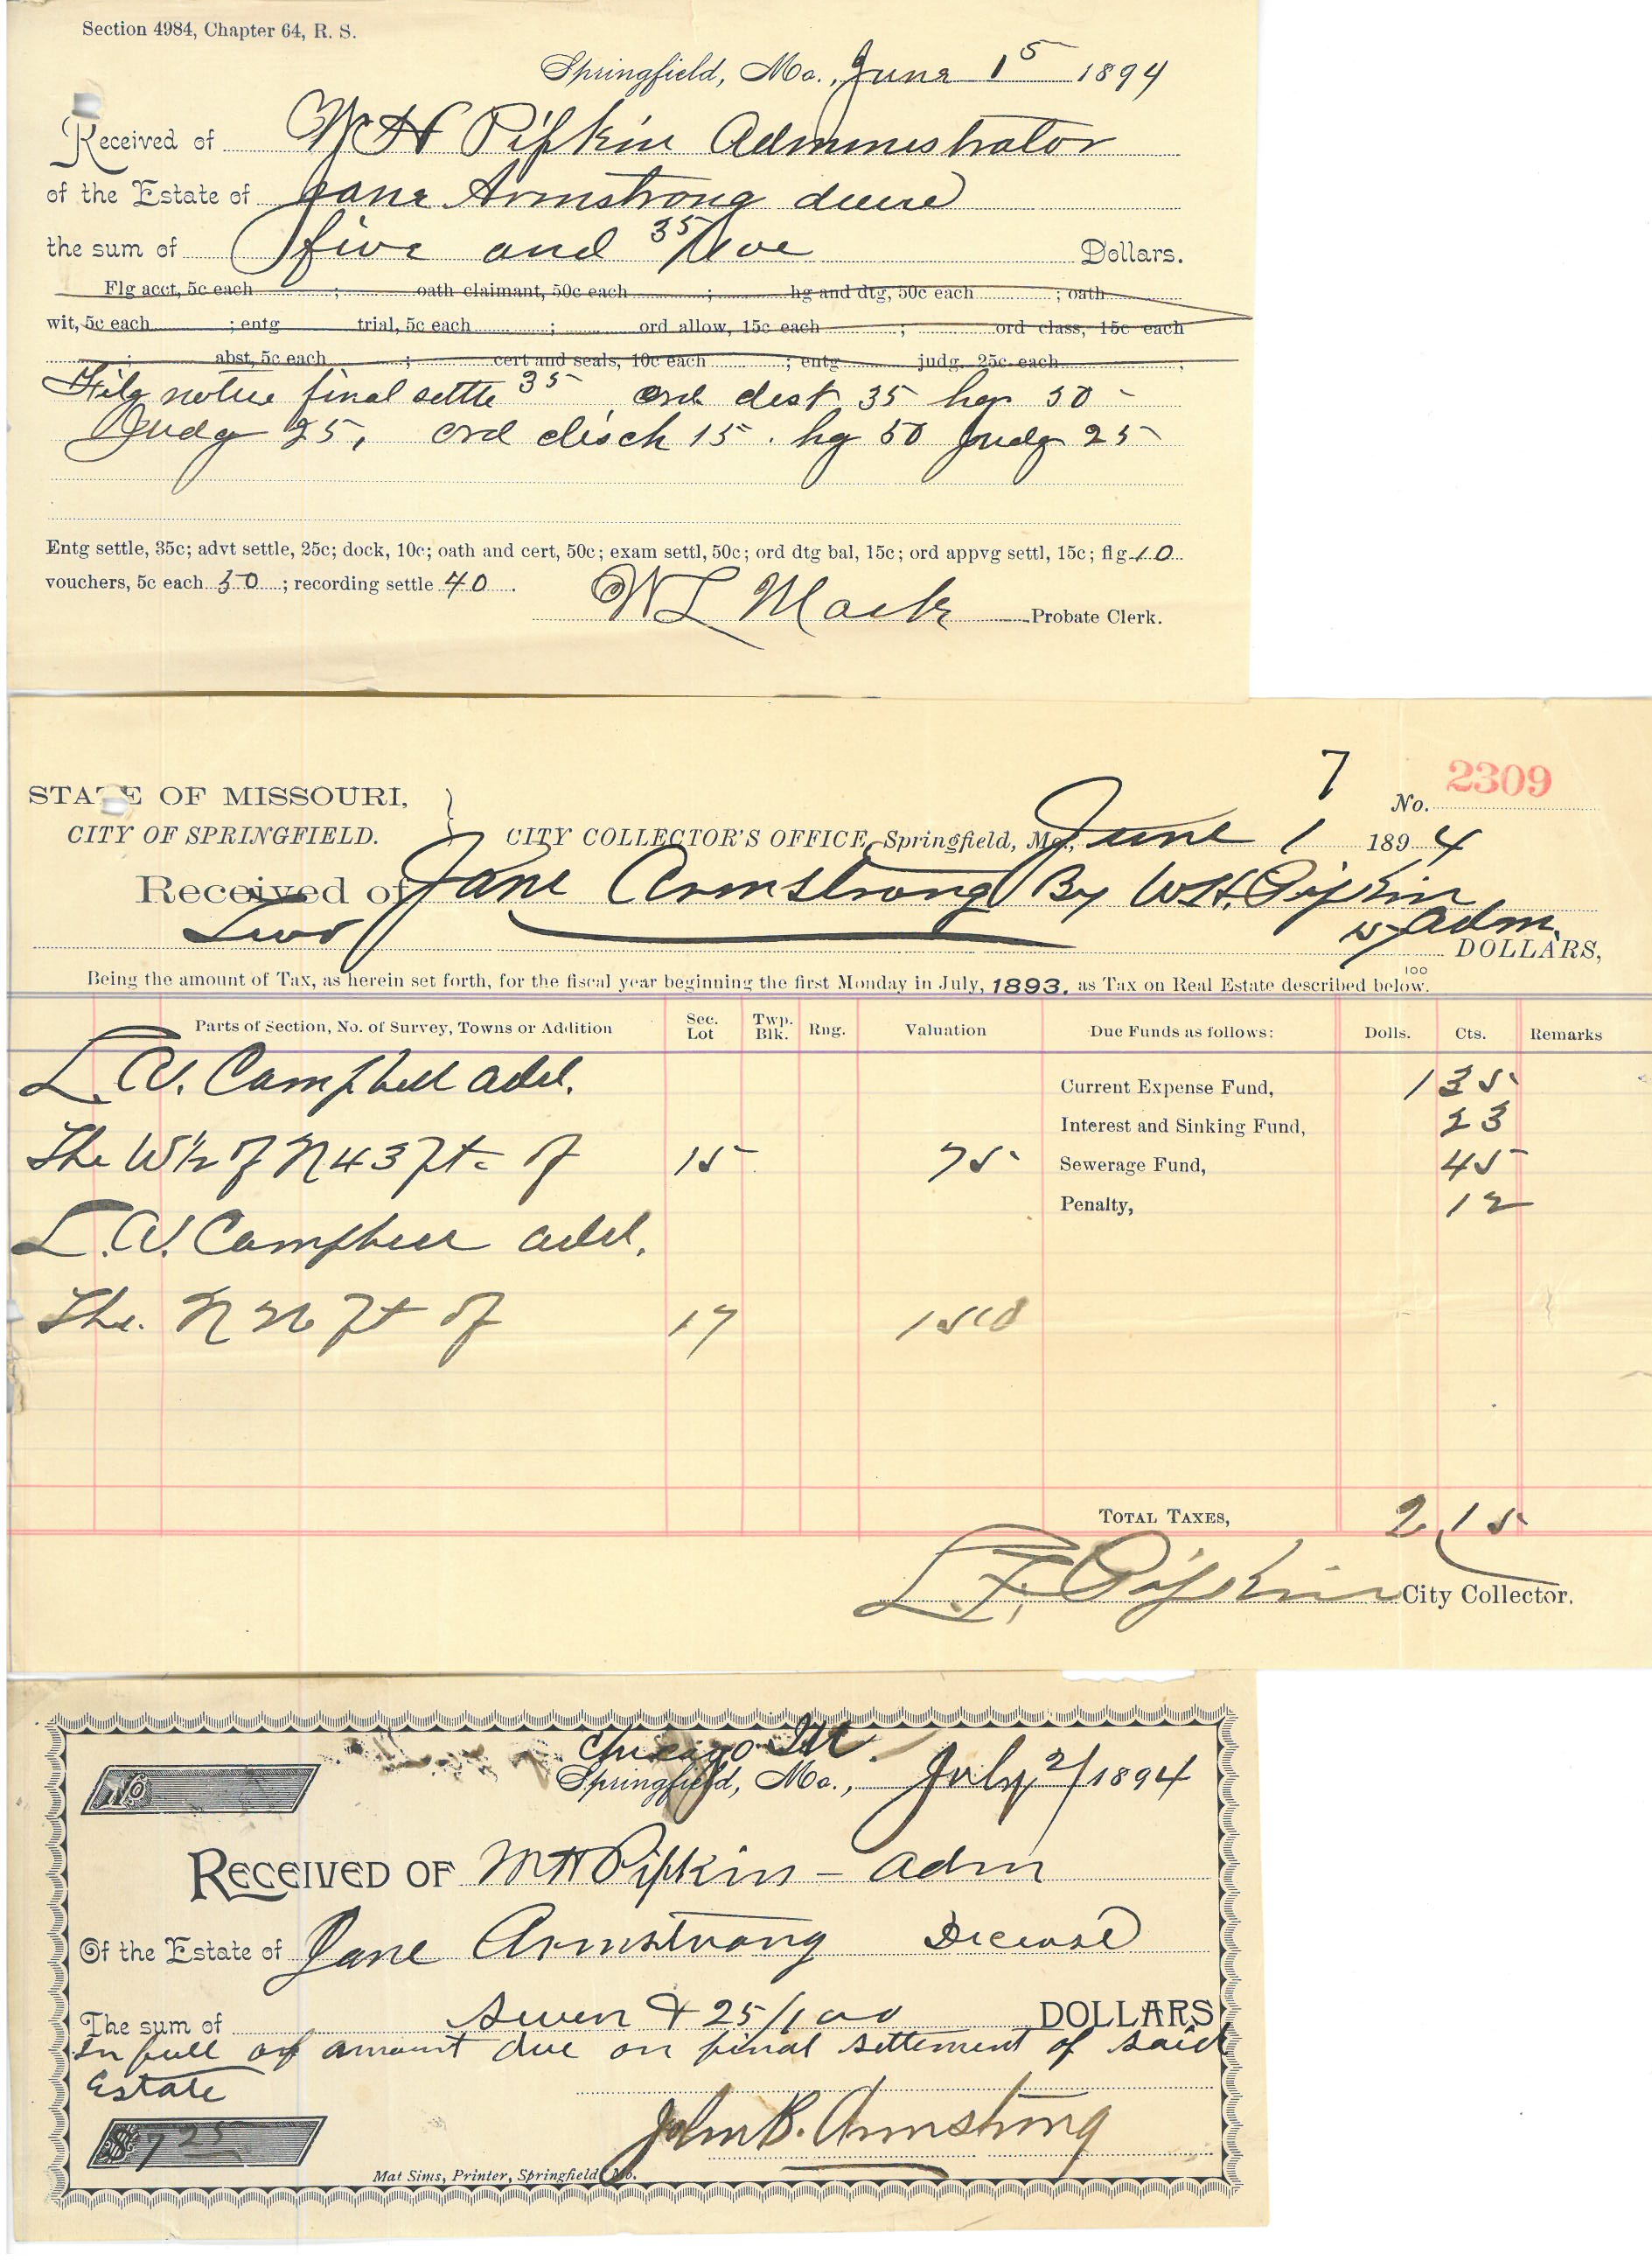 Section 4984, Chapter 64, R. S.
Springfield, Mo., June 15 1894
Received of W H Pipkin Administrator
of the Estate of Jane Armstrong
the sum of five and 35/100 Dollars.
Flg acct, 5c each ; oath claimant, 50c each ; hg and dtg, 50c each ; oath
wit, 5c each ; entg trial, 5c each ; ord allow, 15c each ; ord class, 15c each
; abst, 5c each ; cert and seals, 10c each ; entg judg. 25c each ;
Filg notice final settle 35 ord dist 35 hg 50 -
Judg 25, ord disch 15. hg 50 Judg 25
Entg settle, 35c; advt settle, 25c; dock, 10c; oath and cert, 50c; exam settl, 50c; ord dtg bal, 15c; ord appvg settl, 15c; flg 10
vouchers, 5c each 50 ; recording settle 40 .
W L Mack Probate Clerk.
7
No. 2309
STATE OF MISSOURI,
CITY OF SPRINGFIELD. } CITY COLLECTOR'S OFFICE, Springfield, Mo., June 1 1894
Received of Jane Armstrong By W.H. Pipkin
Two 15 adm.
100 DOLLARS,
Being the amount of Tax, as herein set forth, for the fiscal year beginning the first Monday in July, 1893, as Tax on Real Estate described below.
Parts of Section, No. of Survey, Towns or Addition Sec. Lot Twp. Blk. Rng. Valuation Due Funds as follows: Dolls. Cts. Remarks
L. A. Campbell add. Current Expense Fund, 1 35
Interest and Sinking Fund, 23
The W 1/2 of N 43 ft. of 15 75 Sewerage Fund, 45
Penalty, 12
L. A. Campbell add.
The N 26 ft of 17 150
TOTAL TAXES, 2 15
L. F. Pipkin City Collector.
Chicago Ill.
No Springfield, Mo., July 2/1894
RECEIVED OF W H Pipkin - adm
Of the Estate of Jane Armstrong Deceased
The sum of seven & 25/100 DOLLARS
In full of amount due on final settlement of said
Estate
$7 25 John B. Armstrong
Mat Sims, Printer, Springfield Mo.